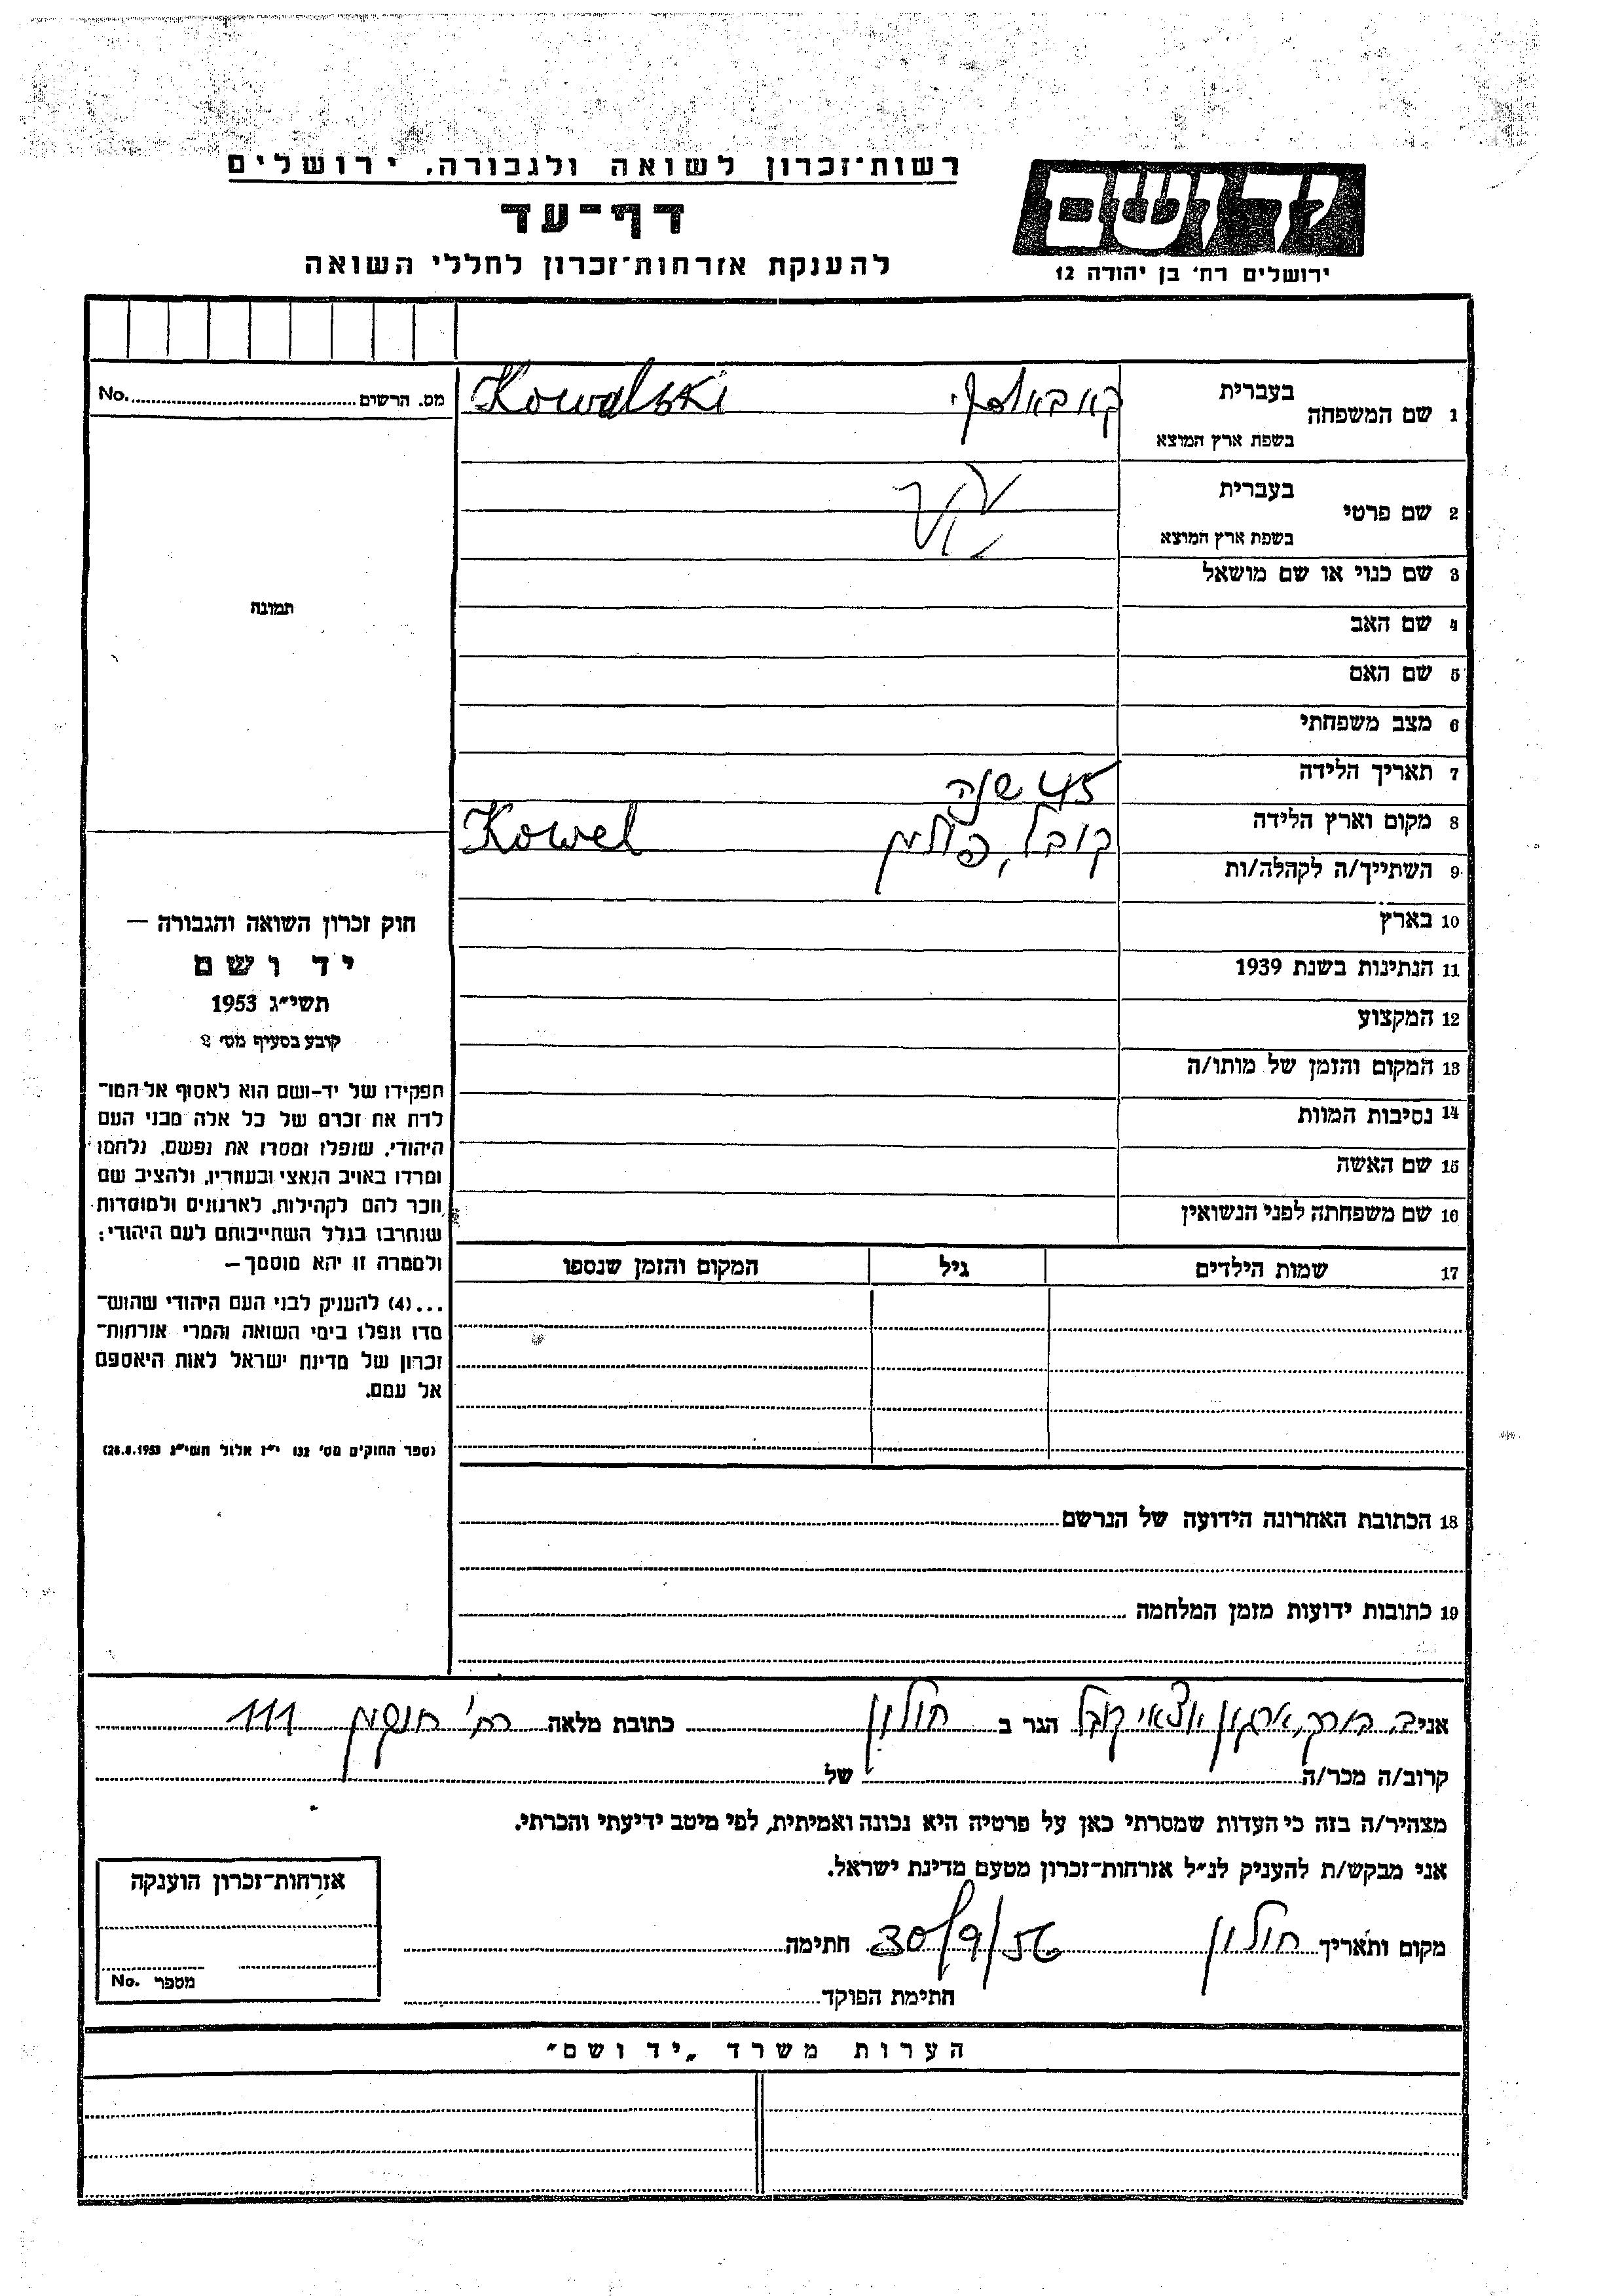 רשות־זכרון לשואה ולגבורה. ירושלים
יד ושם
דף־עד
להענקת אזרחות־זכרון לחללי השואה
ירושלים רח׳ בן יהודה 12
מס. הרשום No.
1 שם המשפחה בעברית קאוואלסקי Kowalski
בשפת ארץ המוצא
2 שם פרטי בעברית
בשפת ארץ המוצא
3 שם כנוי או שם מושאל
תמונה
4 שם האב
5 שם האם
6 מצב משפחתי
7 תאריך הלידה 45 שנה
8 מקום וארץ הלידה קובל, פולין Kowel
9 השתייך/ה לקהלה/ות
10 בארץ
11 הנתינות בשנת 1939
12 המקצוע
13 המקום והזמן של מותו/ה
14 נסיבות המוות
15 שם האשה
16 שם משפחתה לפני הנשואין
17 שמות הילדים גיל המקום והזמן שנספו
חוק זכרון השואה והגבורה —
יד ושם
תשי״ג 1953
קובע בסעיף מס׳ 2
תפקידו של יד-ושם הוא לאסוף אל המו־
לדת את זכרם של כל אלה מבני העם
היהודי, שנפלו ומסרו את נפשם, נלחמו
ומרדו באויב הנאצי ובעוזריו, ולהציב שם
וזכר להם לקהילות, לארגונים ולמוסדות
שנחרבו בגלל השתייכותם לעם היהודי;
ולמטרה זו יהא מוסמך —
...(4) להעניק לבני העם היהודי שהוש־
מדו ונפלו בימי השואה והמרי אזרחות־
זכרון של מדינת ישראל לאות היאספם
אל עמם.
(ספר החוקים מס׳ 132 י״ז אלול תשי״ג 28.8.1953)
18 הכתובת האחרונה הידועה של הנרשם
19 כתובות ידועות מזמן המלחמה
אני ב. ברק, ארגון יוצאי קובל הגר ב חולון כתובת מלאה רח׳ חנקין 111
קרוב/ה מכר/ה של
מצהיר/ה בזה כי העדות שמסרתי כאן על פרטיה היא נכונה ואמיתית, לפי מיטב ידיעתי והכרתי.
אני מבקש/ת להעניק לנ״ל אזרחות־זכרון מטעם מדינת ישראל.
מקום ותאריך חולון 30/9/56 חתימה
חתימת הפוקד
אזרחות־זכרון הוענקה
מספר No.
הערות משרד „יד ושם״